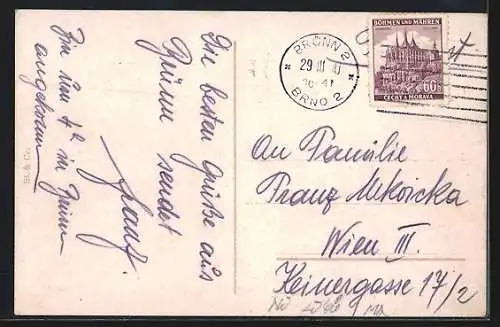 Bin um 4h in Brünn
angekomm
Die besten Grüße aus
Brünn sendet
Franz
St. & Co.
BRÜNN 2
29 III
BRNO 2
BÖHMEN UND MÄHREN
60
ČECHY A MORAVA
An Familie
Franz
Wien III.
Keinergasse 17/2